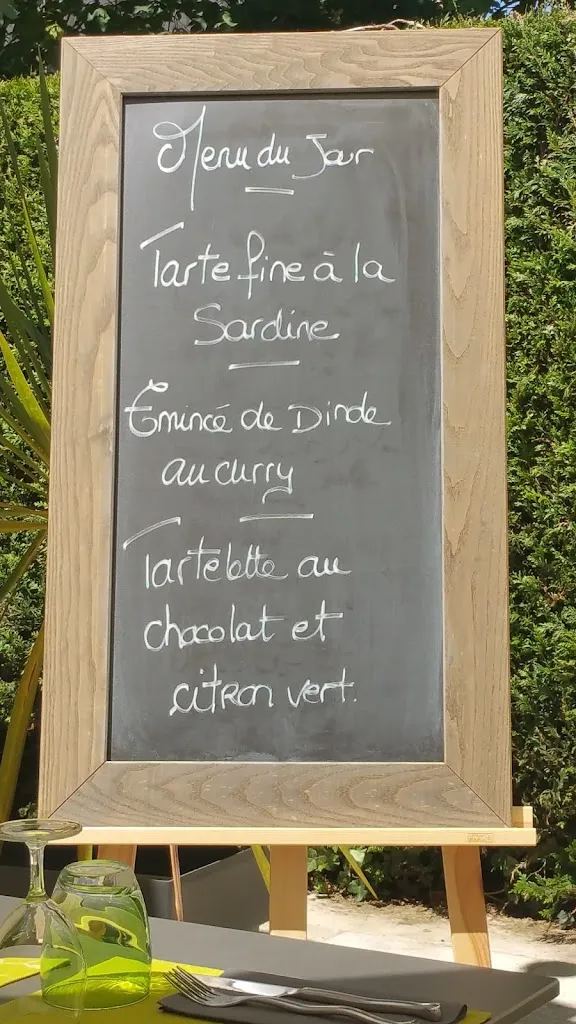 Menu du Jour
Tarte fine à la
Sardine
Emincé de Dinde
au curry
Tartelette au
chocolat et
citron vert.